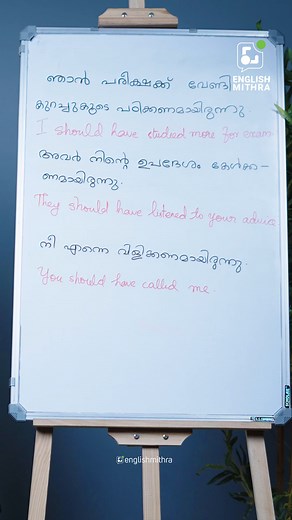 ENGLISH
MITHRA
ഞാൻ പരീക്ഷക്ക് വേണ്ടി
കുറച്ചുകൂടെ പഠിക്കണമായിരുന്നു
I should have studied more for exam
അവർ നിന്റെ ഉപദേശം കേൾക്ക-
ണമായിരുന്നു.
They should have listened to your advice
നീ എന്നെ വിളിക്കണമായിരുന്നു.
You should have called me.
englishmithra